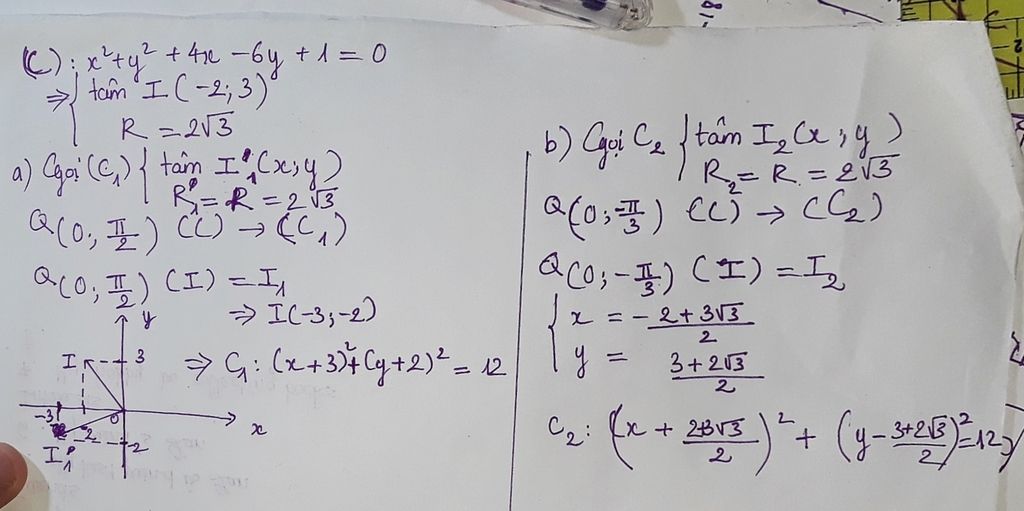 (C): x² + y² + 4x - 6y + 1 = 0
⇒ { tâm I (-2; 3)
R = 2√3
a) Gọi (C₁) { tâm I'₁ (x; y)
R'₁ = R = 2√3
Q(0; π/2) (C) → (C₁)
Q(0; π/2) (I) = I₁
⇒ I(-3; -2)
y
I
3
⇒ C₁: (x+3)² + (y+2)² = 12
-3
0
x
-2
-2
I'₁
b) Gọi C₂ { tâm I₂ (x; y)
R₂ = R = 2√3
Q(0; -π/3) (C) → (C₂)
Q(0; -π/3) (I) = I₂
{ x = -2+3√3/2
y = 3+2√3/2
C₂: (x + 2+3√3/2)² + (y - 3+2√3/2)² = 12